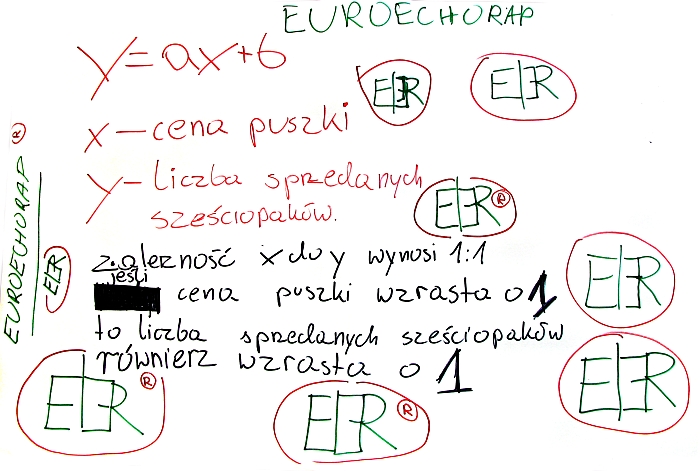 EUROECHORAP
y=ax+b
x – cena puszki
y – liczba sprzedanych
sześciopaków.
EUROECHORAP ®
zależność x do y wynosi 1:1
jeśli
cena puszki wzrasta o 1
to liczba sprzedanych sześciopaków
równierz wzrasta o 1
®
®
®